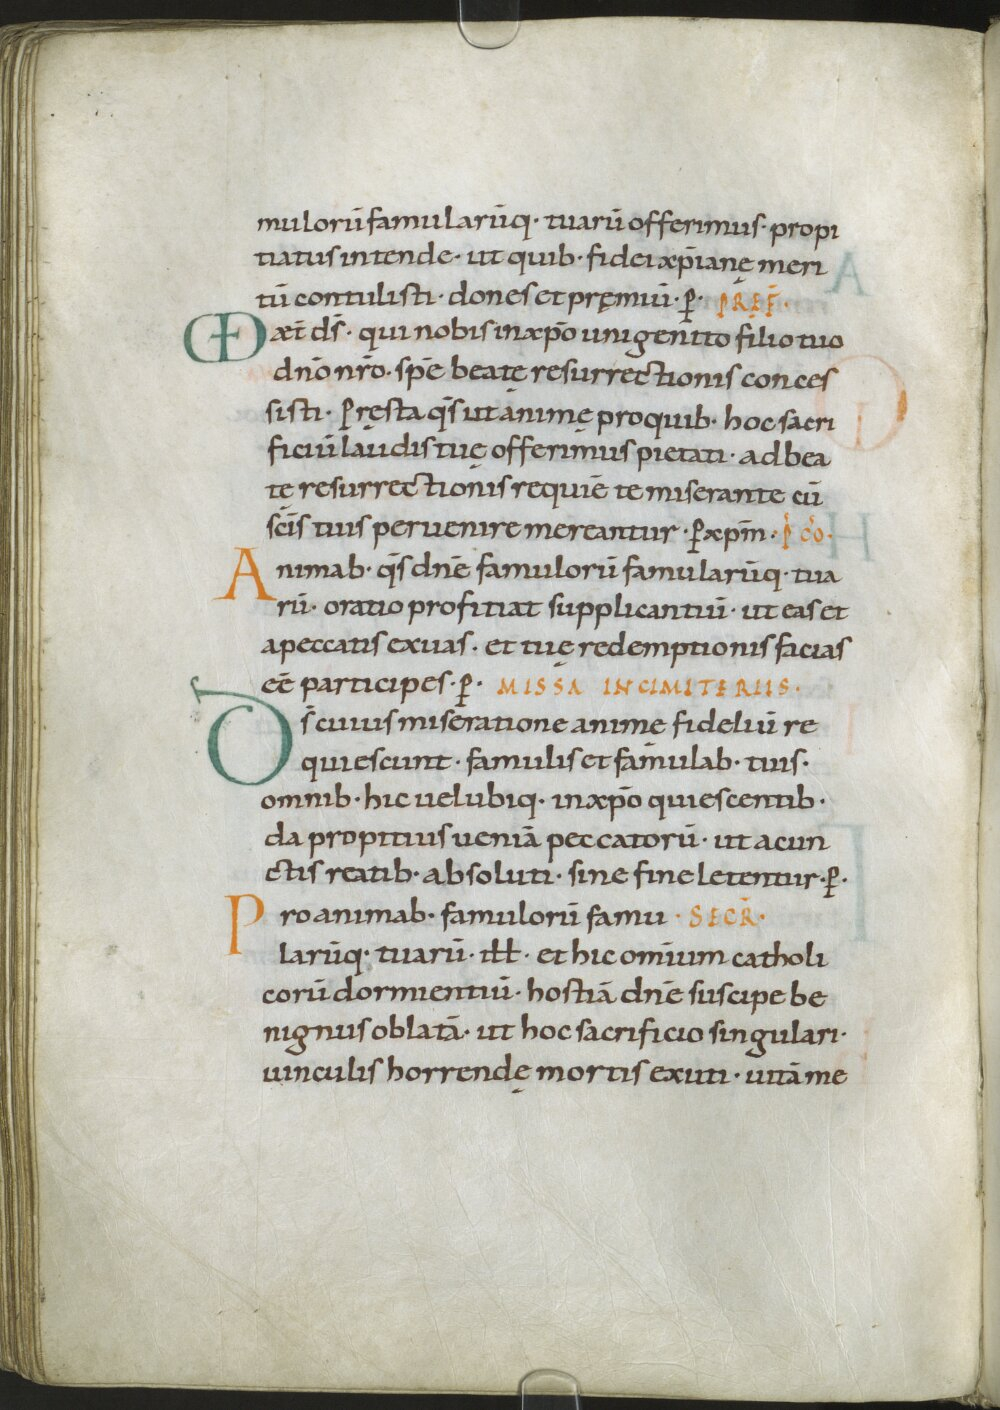 mulorū famularūq· tuarū offerimus· propi
tiatus intende· ut quib· fidei xp̄ianę meri
tū contulisti· dones et pręmiū· p̱· PREF̄·
VD aet̄ ds̄· qui nobis in xp̄o unigenito filio tuo
dn̄o nr̄o· spē beatę resurrectionis conces
sisti· Pręsta qs̄ ut animę pro quib· hoc sacri
ficiū laudis tuę offerimus pietati· ad bea
tę resurrectionis requiē te miserante cū
sc̄is tuis peruenire mereantur· p̱ xp̄m· P̄ CŌ·
Animab· qs̄ dn̄e famulorū famularūq· tua
rū· oratio profitiat supplicantiū· ut eas et
a peccatis exuas· et tuę redemptionis facias
eē participes· p̱· MISSA IN CIMITERIIS·
Ds̄ cuius miseratione animę fideliū re
quiescunt· famulis et famulab· tuis·
omnib· hic uel ubiq· in xp̄o quiescentib·
da propitius ueniā peccatorū· ut a cun
ctis reatib· absoluti· sine fine letentur· p̱·
Pro animab· famulorū famu· SECR̄·
larūq· tuarū· iłł· et hic omīum catholi
corū dormientiū· hostiā dn̄e suscipe be
nignus oblatā· ut hoc sacrificio singulari·
uinculis horrendę mortis exuti· uitā me